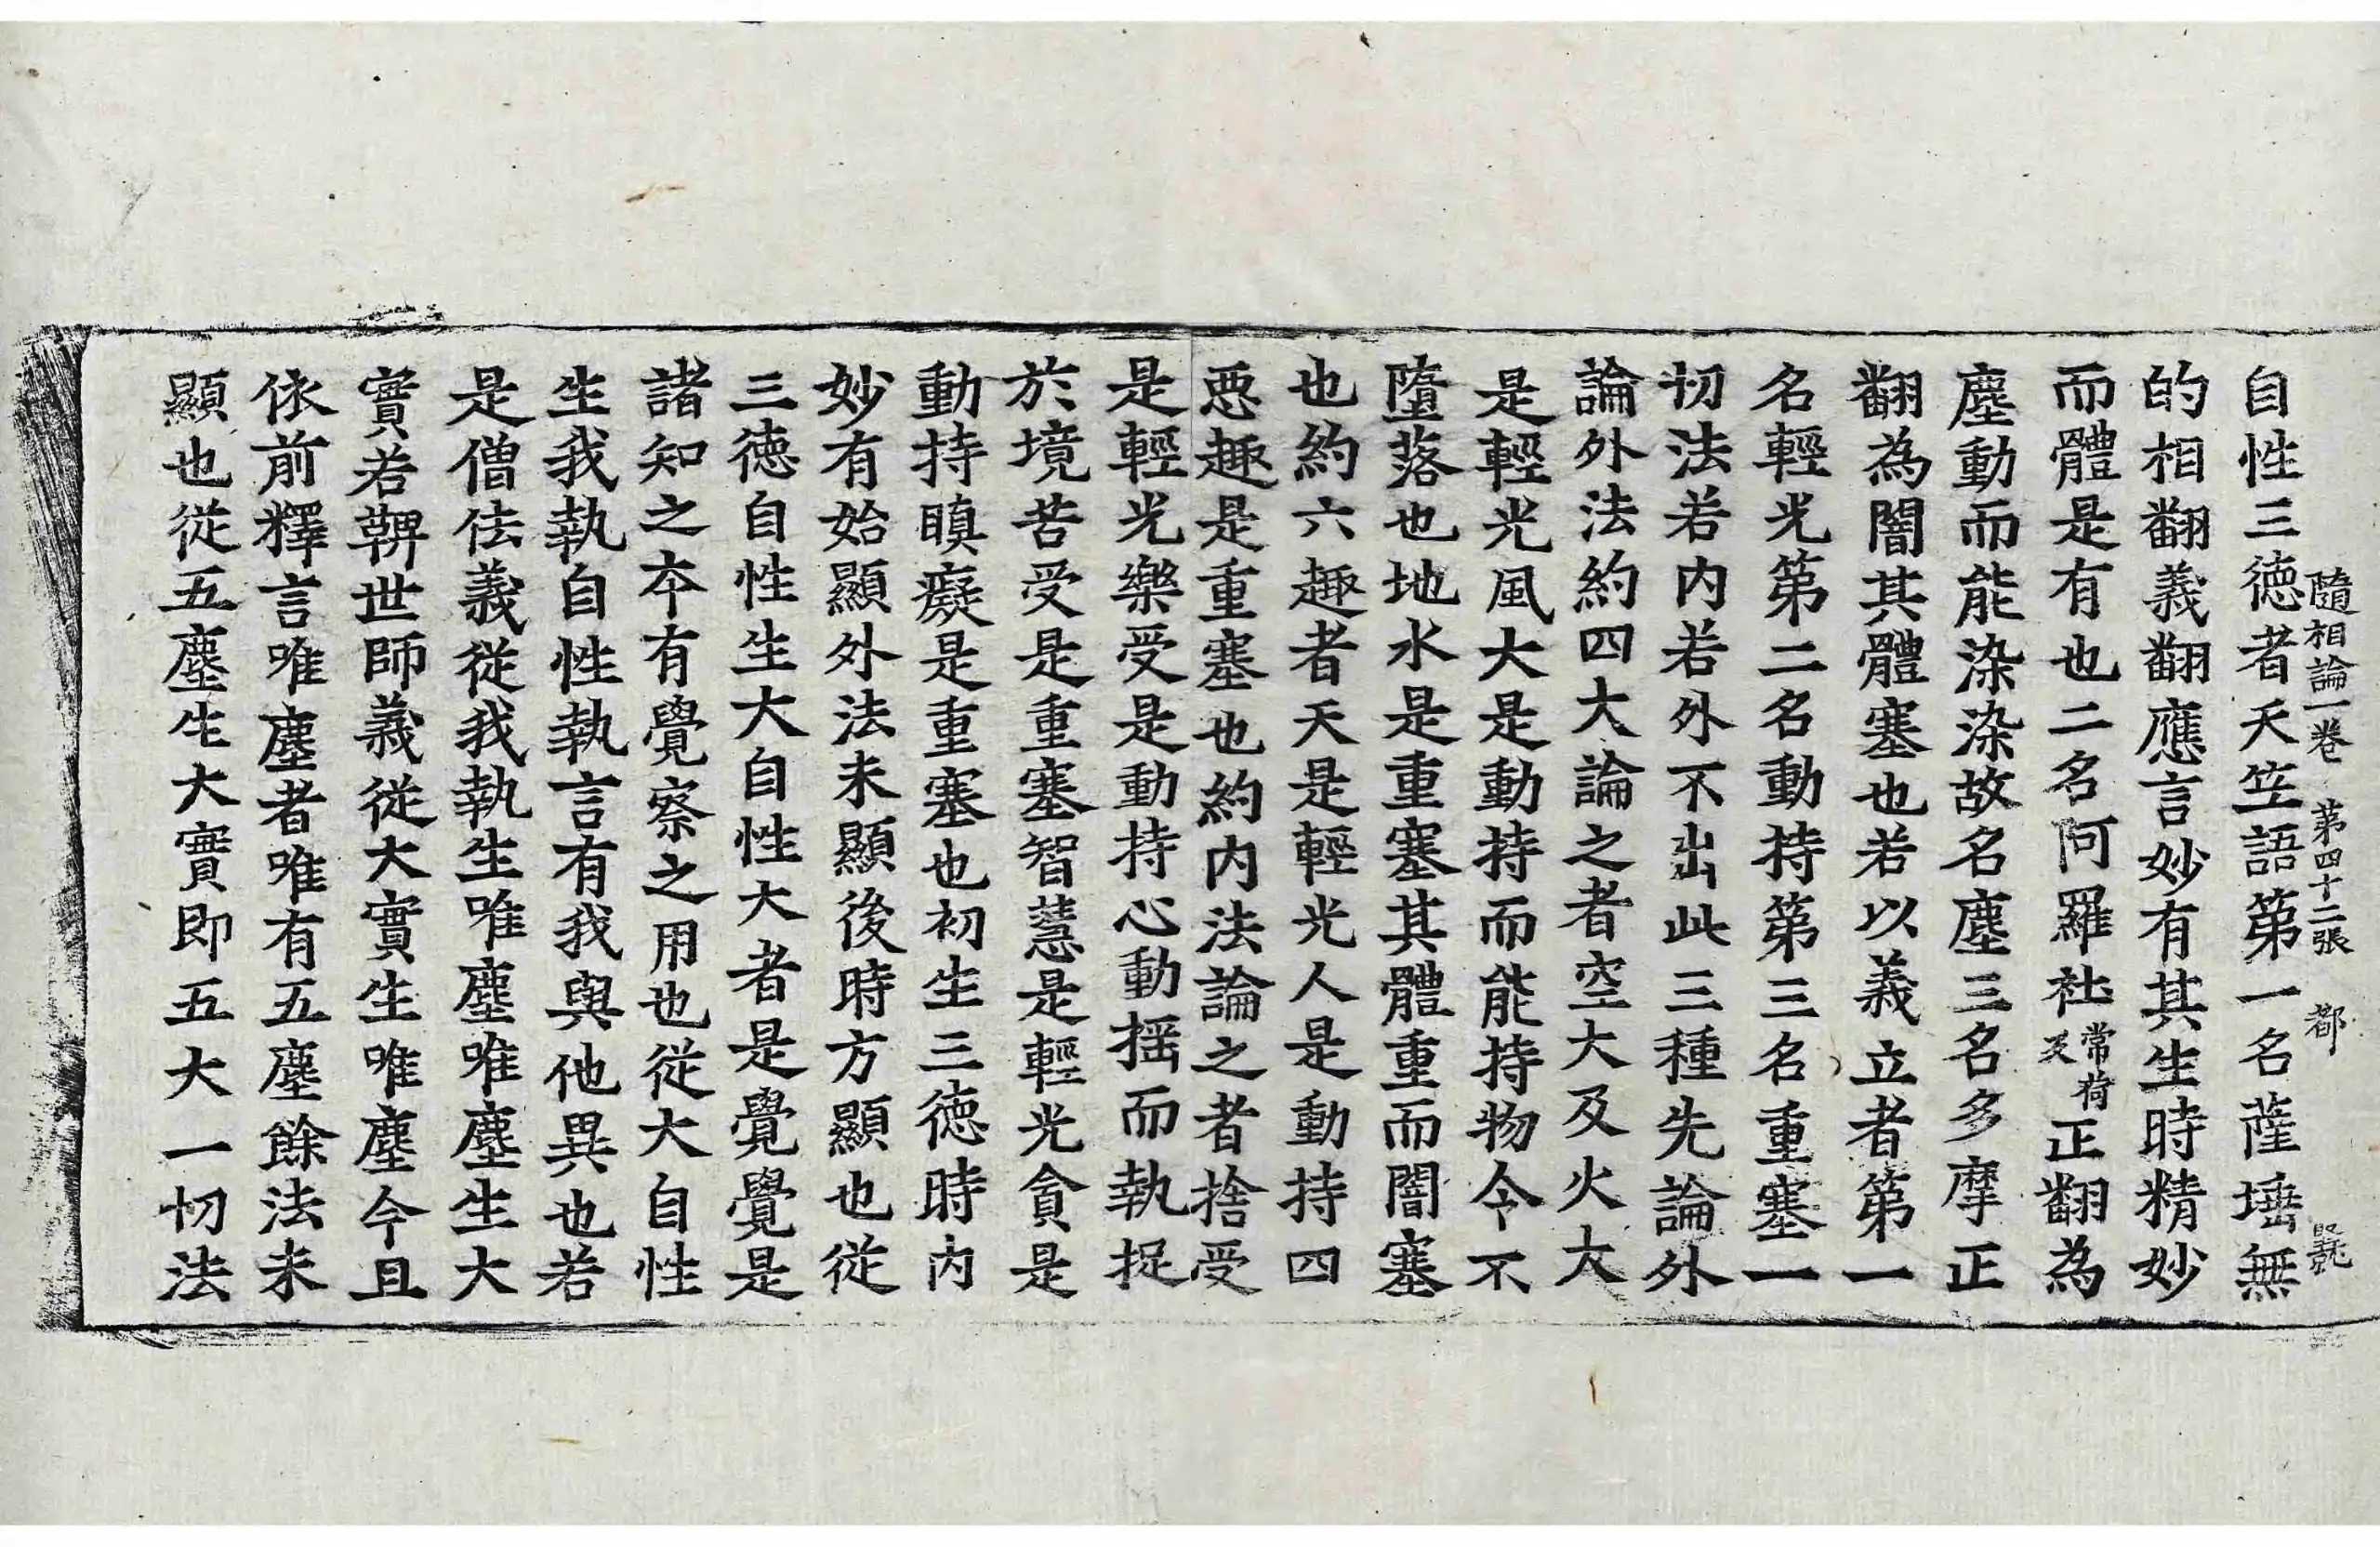 隨相論一卷 第四十二張 都
自性三德者天竺語第一名薩埵無
的相翻義翻應言妙有其生時精妙
而體是有也二名阿羅社常荷反正翻為
塵動而能染染故名塵三名多摩正
翻為闇其體塞也若以義立者第一
名輕光第二名動持第三名重塞一
切法若內若外不出此三種先論外
論外法約四大論之者空大及火大
是輕光風大是動持而能持物令不
墮落也地水是重塞其體重而闇塞
也約六趣者天是輕光人是動持四
惡趣是重塞也約內法論之者捨受
是輕光樂受是動持心動揺而執捉
於境苦受是重塞智慧是輕光貪是
動持瞋癡是重塞也初生三德時內
妙有始顯外法未顯後時方顯也從
三德自性生大自性大者是覺覺是
諸知之夲有覺察之用也從大自性
生我執自性執言有我與他異也若
是僧佉義從我執生唯塵唯塵生大
實若鞞世師義從大實生唯塵今且
依前釋言唯塵者唯有五塵餘法未
顯也從五塵生大實即五大一切法